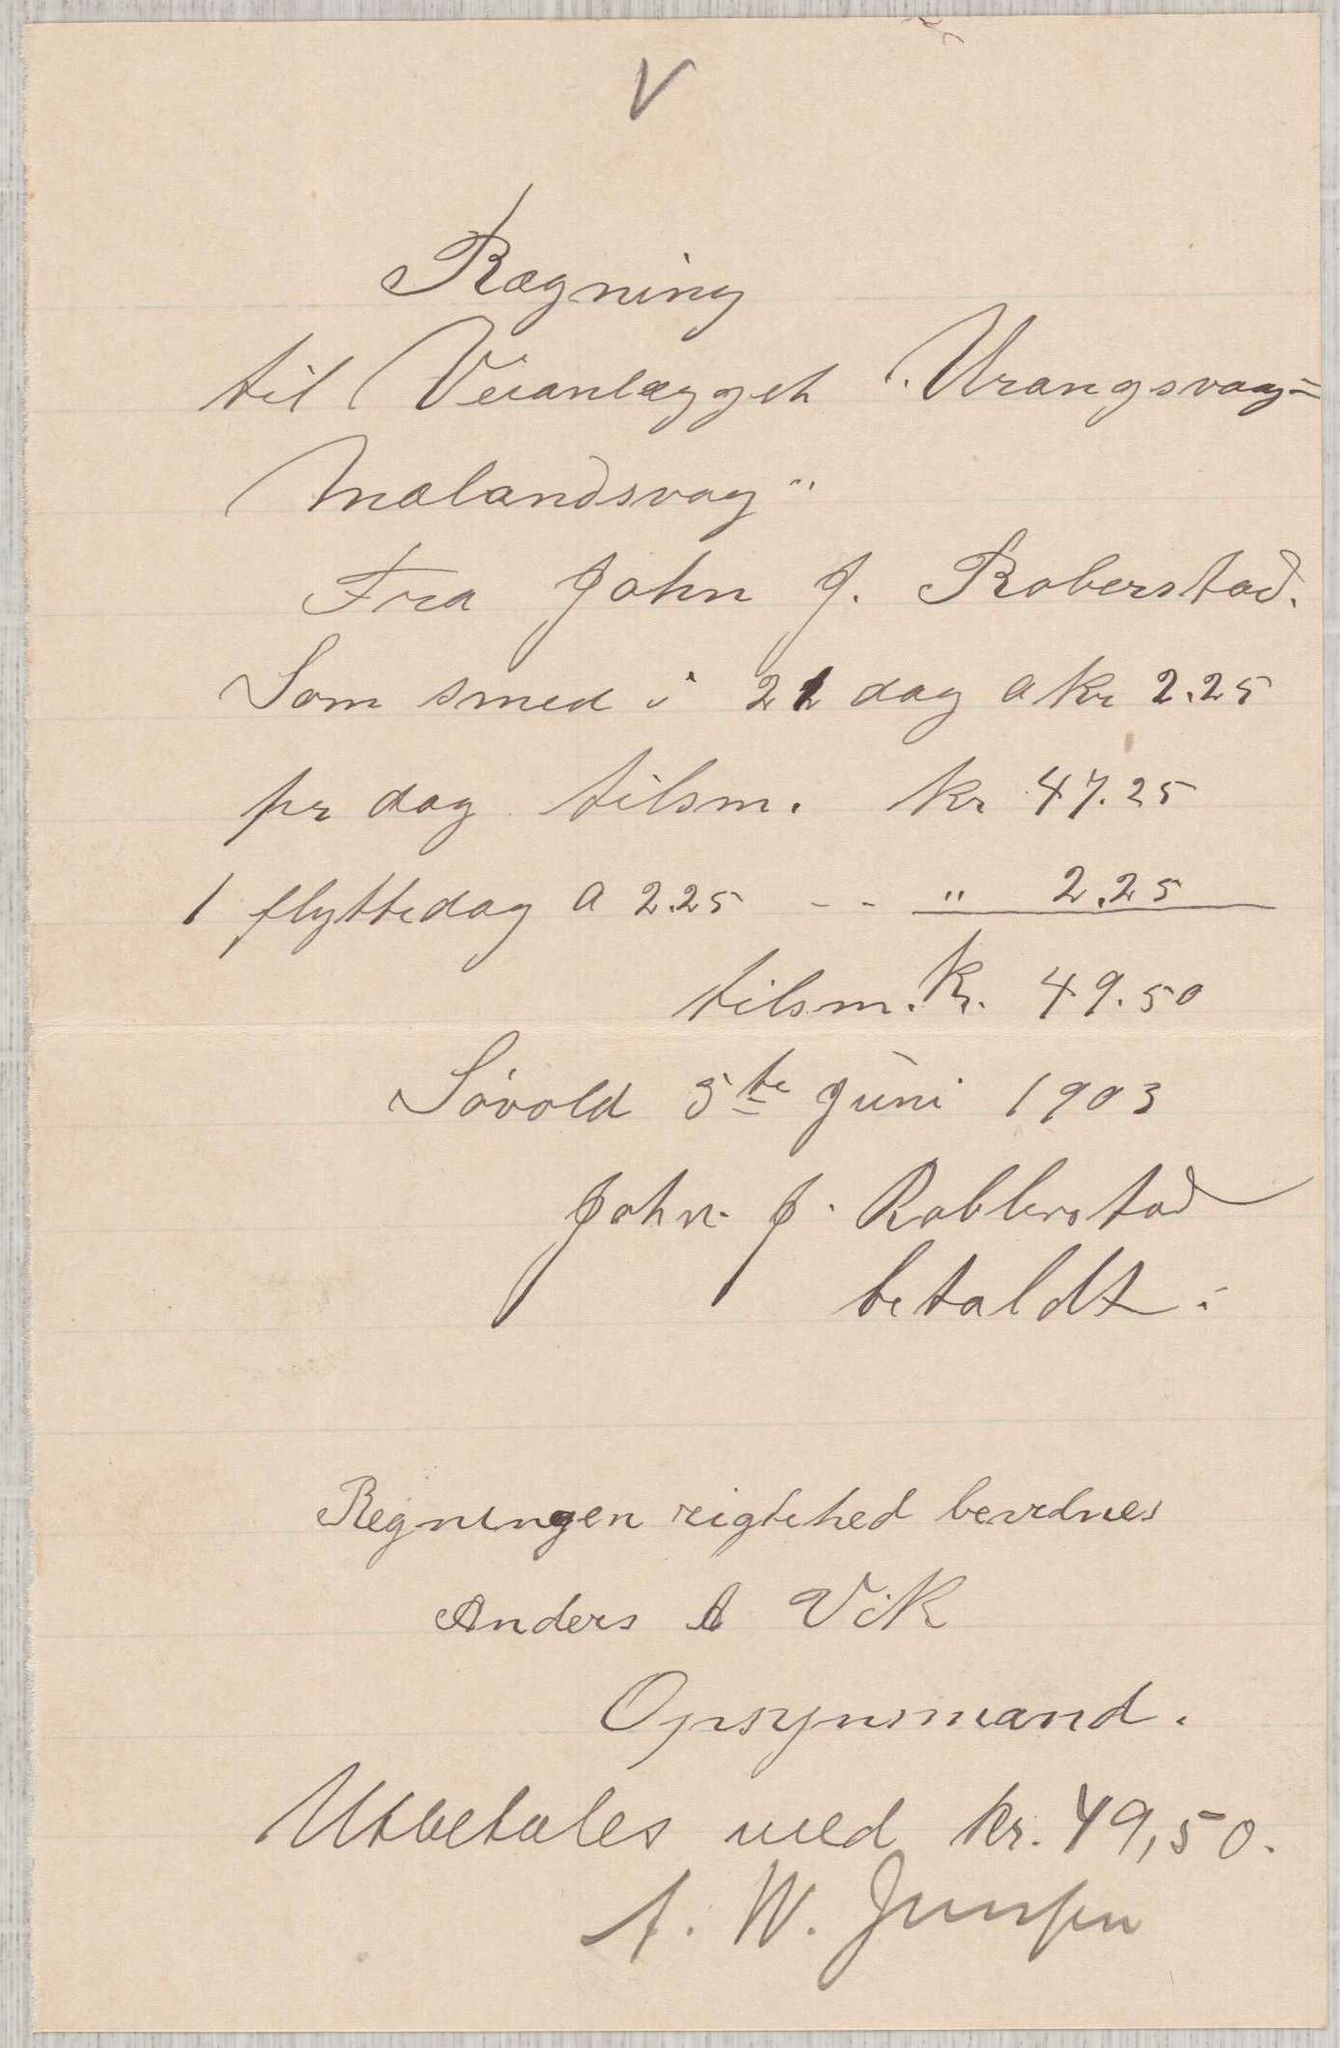 V
Rægning
til Veianlægget "Urangsvag=
Mælandsvag"
Fra John J. Roberstad.
Som smed i 21 dag a kr 2.25
pr dag tilsm. kr 47.25
1 flyttedag a 2.25 - - " 2.25
tilsm. kr. 49.50
Søvold 5te Juni 1903
John J. Robberstad
betaldt.
Regningen rigtihed bevidnes
Anders A Vik
Opsynsmand.
Utbetales med kr. 49,50.
A. W. Jensen